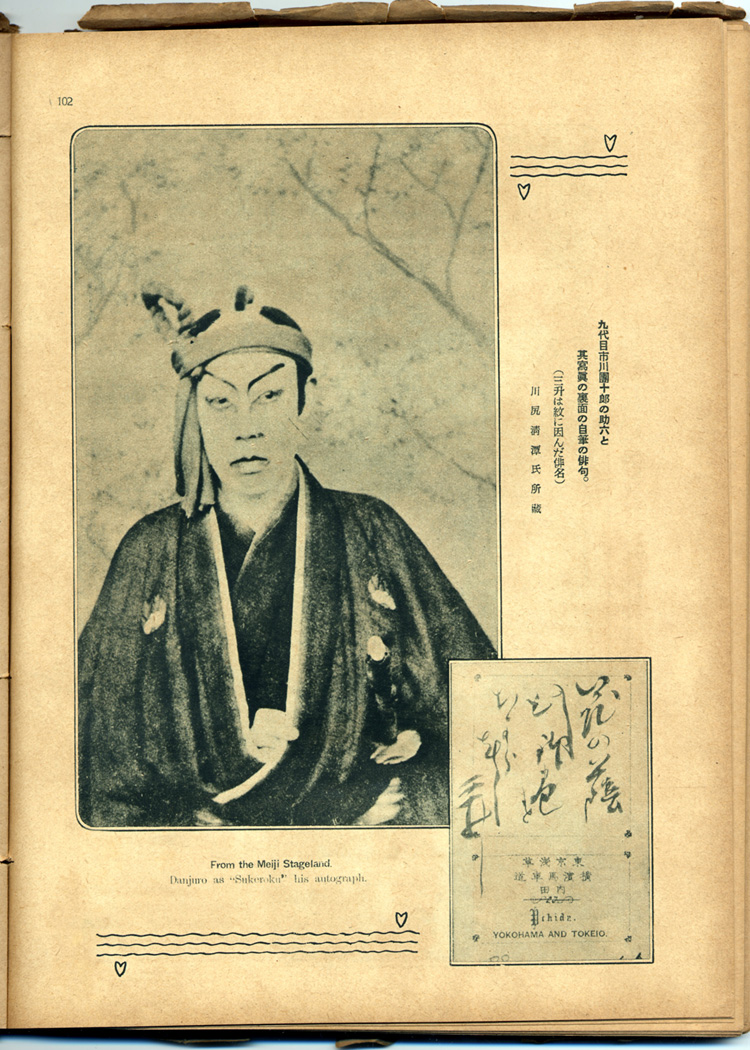 102
九代目市川團十郎の助六と
其寫眞の裏面の自筆の俳句。
(三升は紋に因んだ俳名)
川尻清潭氏所藏
花の蔭
東京淺草
橫濱馬車道
内田
Uchida.
YOKOHAMA AND TOKEIO.
From the Meiji Stageland.
Danjuro as "Sukeroku" his autograph.